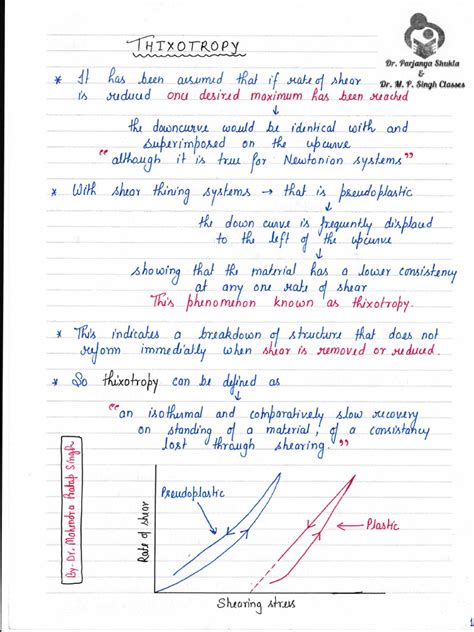 THIXOTROPY
Dr. Parjanya Shukla
&
Dr. M. P. Singh Classes
* It has been assumed that if rate of shear
is reduced one desired maximum has been reached
↓
the downcurve would be identical with and
superimposed on the upcurve
"although it is true for Newtonion systems"
* With shear thining systems → that is pseudoplastic
↓
the down curve is frequently displaced
to the left of the upcurve
↓
showing that the material has a lower consistency
at any one rate of shear
This phenomenon known as thixotropy.
* This indicates a breakdown of structure that does not
reform immediatly when shear is removed or reduced.
* So thixotropy can be defined as
"an isothermal and comparatively slow recovery
on standing of a material, of a consistancy
lost through shearing."
By- Dr. Mahendra Pratap Singh
Rate of shear
Pseudoplastic
Plastic
Shearing stress
1